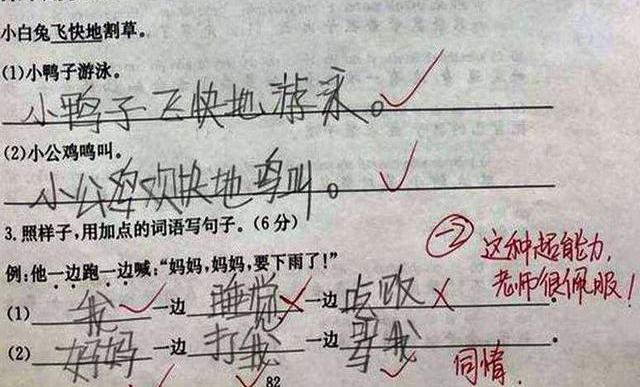 小白兔飞快地割草。
(1)小鸭子游泳。
小鸭子飞快地游泳。
(2)小公鸡鸣叫。
小公鸡欢快地鸣叫。
3.照样子,用加点的词语写句子。(6分)
-2 这种超能力,
老师很佩服!
例:他一边跑一边喊:“妈妈,妈妈,要下雨了!”
(1) 我 一边 睡觉 一边 吃饭 。
(2) 妈妈 一边 打我 一边 骂我 。
同情
82